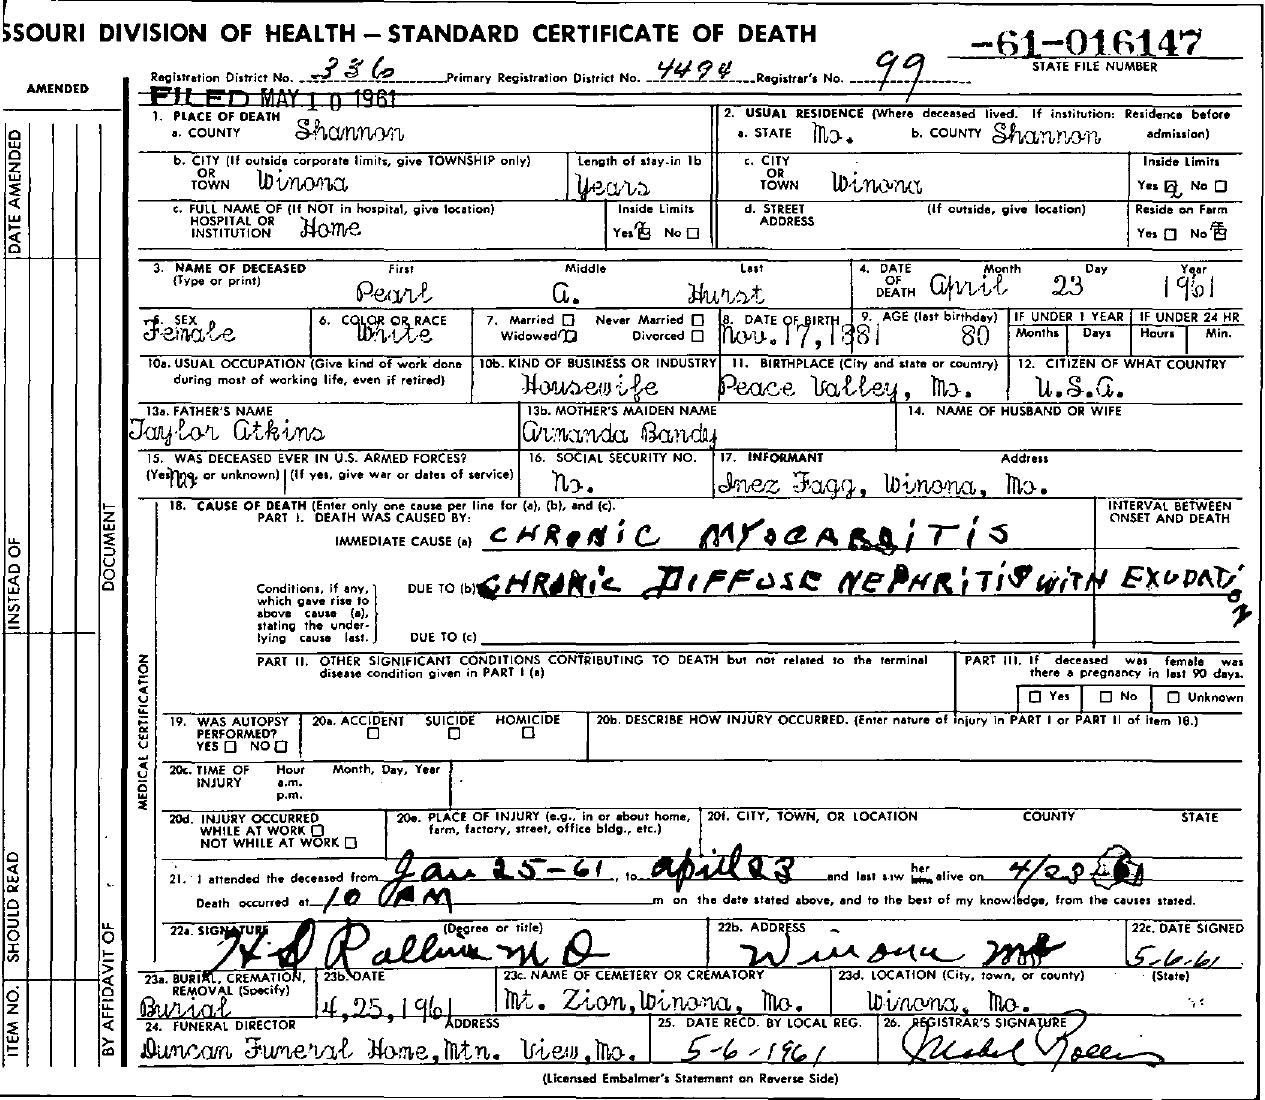 SSOURI DIVISION OF HEALTH — STANDARD CERTIFICATE OF DEATH
-61-016147
STATE FILE NUMBER
Registration District No. 336 Primary Registration District No. 4494 Registrar's No. 99
AMENDED
FILED MAY 10 1961
1. PLACE OF DEATH
a. COUNTY Shannon
2. USUAL RESIDENCE (Where deceased lived. If institution: Residence before admission)
a. STATE Mo. b. COUNTY Shannon
b. CITY (If outside corporate limits, give TOWNSHIP only) OR TOWN Winona
Length of stay in 1b Years
c. CITY OR TOWN Winona
Inside Limits Yes No
c. FULL NAME OF (If NOT in hospital, give location) HOSPITAL OR INSTITUTION Home
Inside Limits Yes No
d. STREET ADDRESS (If outside, give location)
Reside on Farm Yes No
3. NAME OF DECEASED (Type or print) First Middle Last
Pearl A. Hurst
4. DATE OF DEATH Month Day Year
April 23 1961
5. SEX Female
6. COLOR OR RACE White
7. Married Never Married Widowed Divorced
8. DATE OF BIRTH Nov. 17, 1881
9. AGE (last birthday) 80
IF UNDER 1 YEAR Months Days
IF UNDER 24 HR Hours Min.
10a. USUAL OCCUPATION (Give kind of work done during most of working life, even if retired)
10b. KIND OF BUSINESS OR INDUSTRY Housewife
11. BIRTHPLACE (City and state or country) Peace Valley, Mo.
12. CITIZEN OF WHAT COUNTRY U.S.A.
13a. FATHER'S NAME Taylor Atkins
13b. MOTHER'S MAIDEN NAME Armanda Bandy
14. NAME OF HUSBAND OR WIFE
15. WAS DECEASED EVER IN U.S. ARMED FORCES?
(Yes, no, or unknown) (If yes, give war or dates of service)
16. SOCIAL SECURITY NO. No.
17. INFORMANT Address
Inez Fagg, Winona, Mo.
18. CAUSE OF DEATH (Enter only one cause per line for (a), (b), and (c).
PART I. DEATH WAS CAUSED BY:
INTERVAL BETWEEN ONSET AND DEATH
IMMEDIATE CAUSE (a) CHRONIC MYOCARDITIS
Conditions, if any, which gave rise to above cause (a), stating the underlying cause last.
DUE TO (b) CHRONIC DIFFUSE NEPHRITIS WITH EXUDATION
DUE TO (c)
PART II. OTHER SIGNIFICANT CONDITIONS CONTRIBUTING TO DEATH but not related to the terminal disease condition given in PART I (a)
PART III. If deceased was female was there a pregnancy in last 90 days.
Yes No Unknown
19. WAS AUTOPSY PERFORMED? YES NO
20a. ACCIDENT SUICIDE HOMICIDE
20b. DESCRIBE HOW INJURY OCCURRED. (Enter nature of injury in PART I or PART II of item 18.)
20c. TIME OF INJURY Hour a.m. p.m. Month, Day, Year
20d. INJURY OCCURRED WHILE AT WORK NOT WHILE AT WORK
20e. PLACE OF INJURY (e.g., in or about home, farm, factory, street, office bldg., etc.)
20f. CITY, TOWN, OR LOCATION COUNTY STATE
21. I attended the deceased from Jan 25-61, to April 23 and last saw her alive on 4/23 61
Death occurred at 10 AM m on the date stated above, and to the best of my knowledge, from the causes stated.
22a. SIGNATURE (Degree or title) H D Rollins M D
22b. ADDRESS Winona Mo
22c. DATE SIGNED 5-6-61
23a. BURIAL, CREMATION, REMOVAL (Specify) Burial
23b. DATE 4,25,1961
23c. NAME OF CEMETERY OR CREMATORY Mt. Zion, Winona, Mo.
23d. LOCATION (City, town, or county) (State) Winona, Mo.
24. FUNERAL DIRECTOR ADDRESS
Duncan Funeral Home, Mtn. View, Mo.
25. DATE RECD. BY LOCAL REG. 5-6-1961
26. REGISTRAR'S SIGNATURE Mabel Rollins
(Licensed Embalmer's Statement on Reverse Side)
DATE AMENDED
INSTEAD OF
DOCUMENT
MEDICAL CERTIFICATION
SHOULD READ
ITEM NO.
BY AFFIDAVIT OF